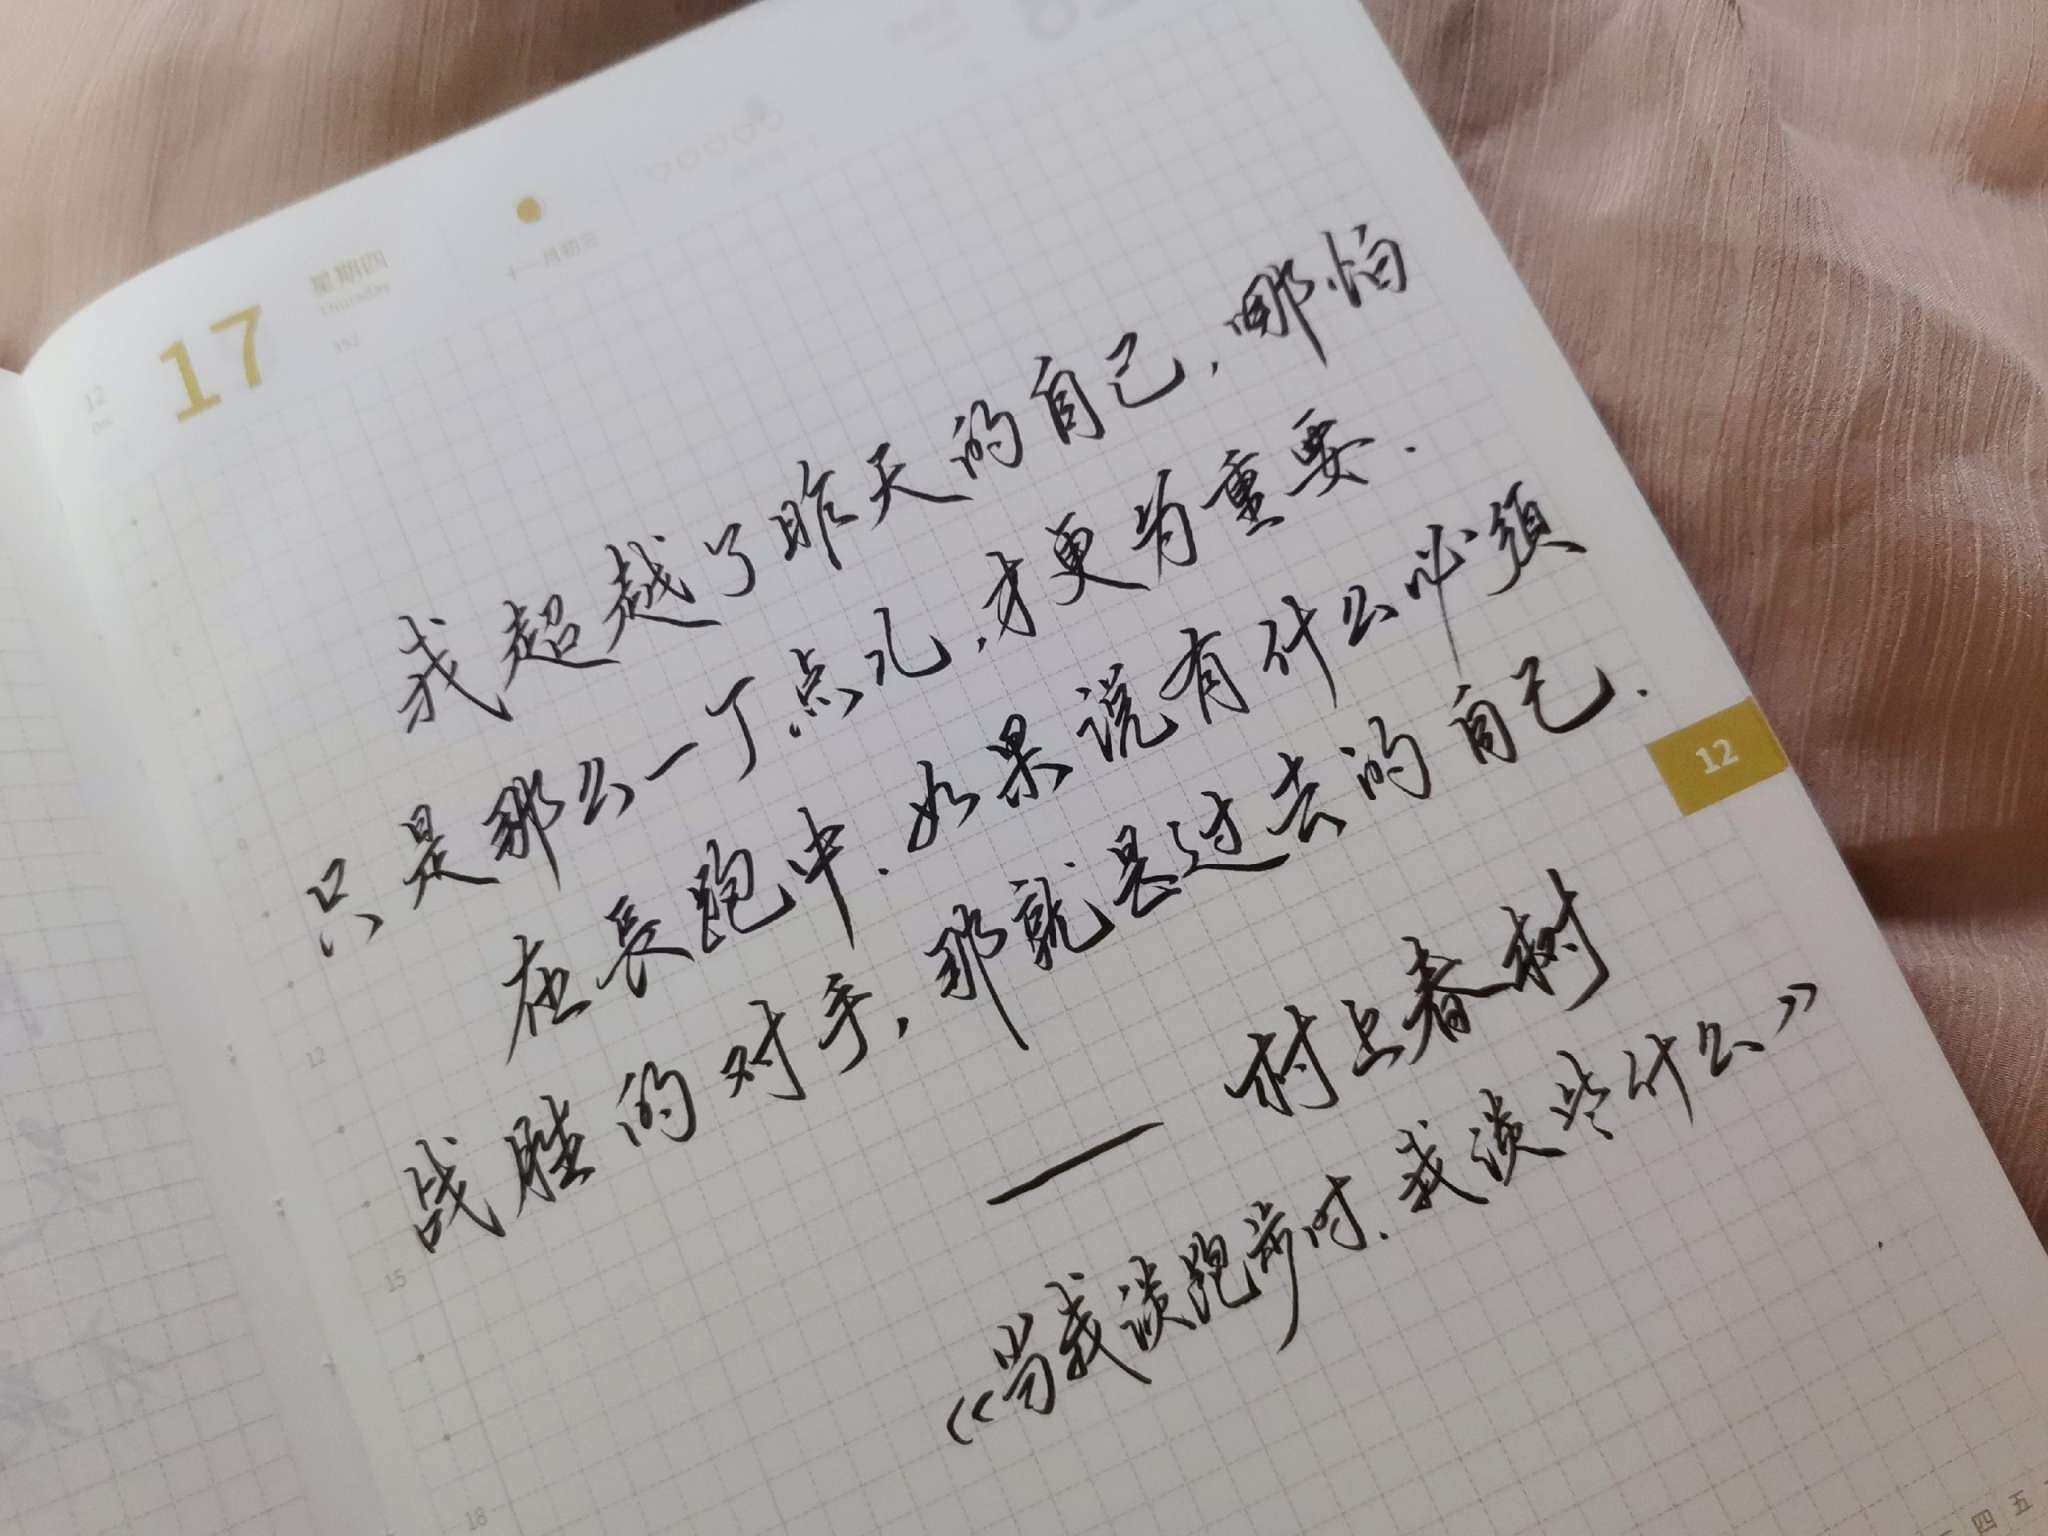 12
Dec
17
星期四
Thursday
352
十一月初三
我超越了昨天的自己,哪怕
只是那么一丁点儿,才更为重要.
在長跑中.如果说有什么必须
战胜的对手,那就是过去的自己.
—— 村上春树
《当我谈跑步时.我谈些什么》
12
12
15
18
四 五